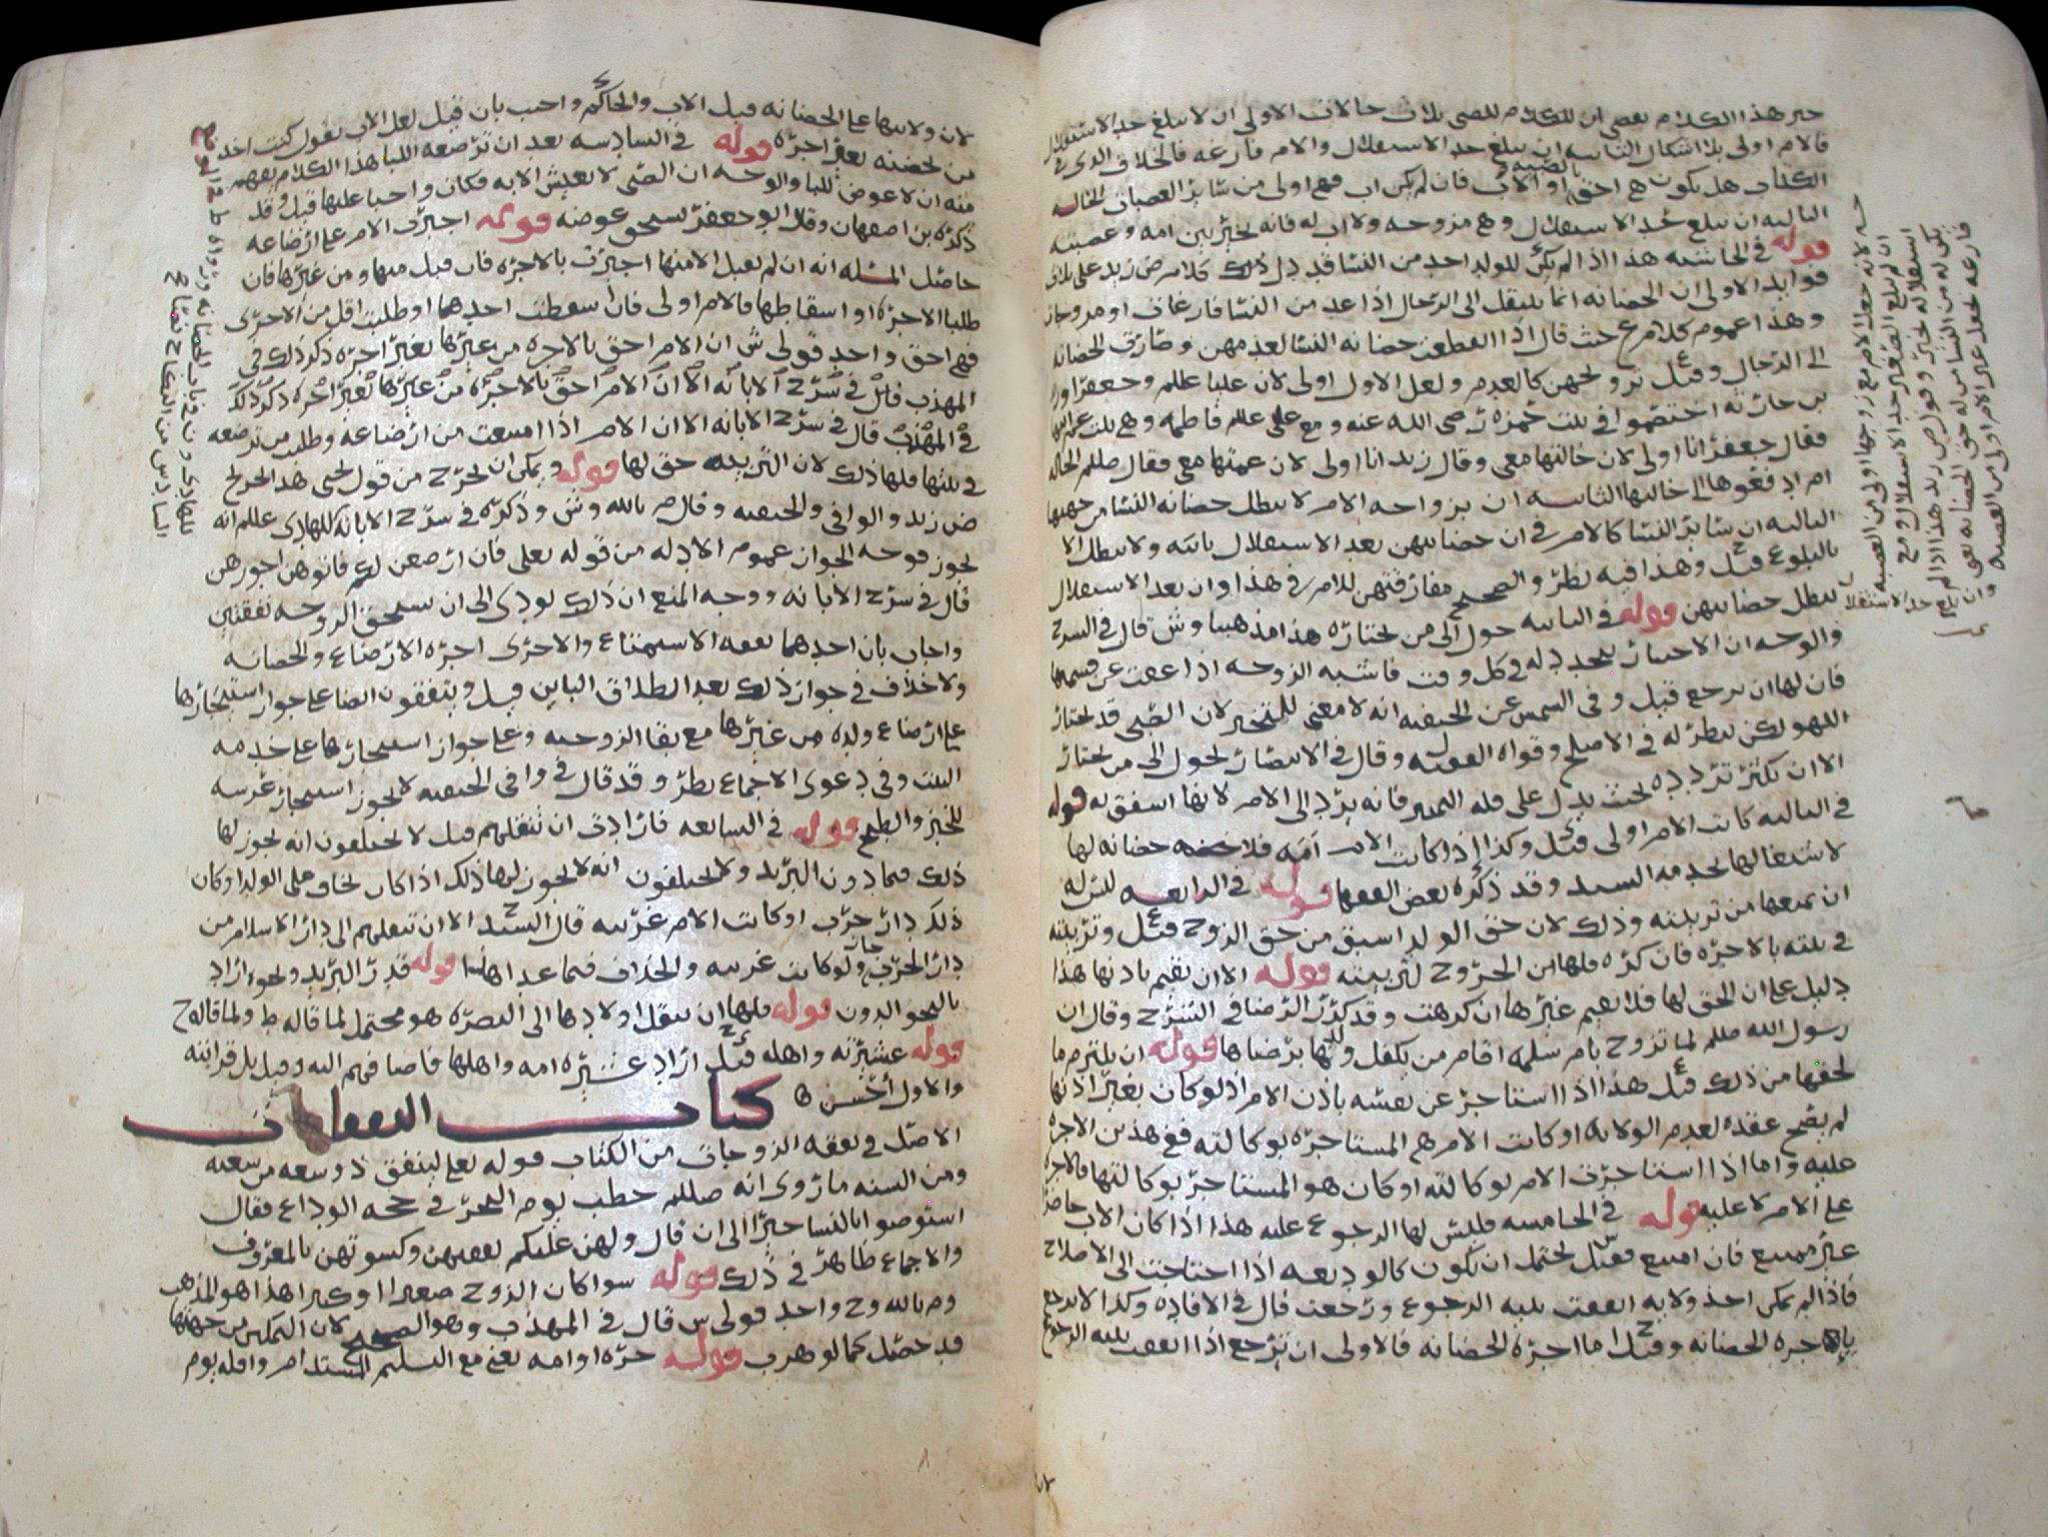 خير هذا الكلام يعصى ان للكلام للصبى ثلاث حالات الاولى ان لا يبلغ حد الاستقلال
فالام اولى بلا اشكال الثانيه ان يبلغ حد الاستقلال والام فارغه فالخلاف الذى فى
الكتاب هل يكون هى احق بالصبيه او الاب فان لم يكن اب فهى اولى من سائر العصبات الحاله
الثالثه ان يبلغ حد الاستقلال وهى مزوجه ولا اب له فانه يخير بين امه وعصبته
قوله فى الحاشيه هذا اذا لم يكن للولد احد من النسا قد دل ذلك كلام ض زيد على ثلاث
فوايد الاولى ان الحضانه انما تنتقل الى الرجال اذا عدمن النسا فارغات او مزوجات
وهذا عموم كلام ع حيث قال اذا انقطعت حضانه النسا لعدمهن وصارت الحضانه
الى الرجال وقيل تزويجهن كالعدم ولعل الاول اولى لان عليا عللم وجعفرا وزيد
بن حارثه اختصموا فى بنت حمزه رضى الله عنه ومع على عللم فاطمه وهى بنت عم ابيها
فقال جعفر انا اولى لان خالتها معى وقال زيد انا اولى لان عمتها معى فقال صللم الخاله
ام ادفعوها الى خالتها الثانيه ان بزواجه الام لا يبطل حضانه النسا من جهتها
الثالثه ان سائر النسا كالام فى ان حضانتهن بعد الاستقلال باقيه ولا تبطل الا
بالبلوغ قيل وهذا فيه نظر والصحيح مفارقتهن للام فى هذا وان بعد الاستقلال
تبطل حضانتهن قوله فى الثانيه حول الى من يختاره هذا مذهبنا وش قال فى الشرح
والوجه ان الاختيار يتجدد له فى كل وقت فاشبه الزوجه اذا عفت عن قسمها
فان لها ان ترجع قيل وفى الشمس عن الحنفيه انه لا معنى للتخيير لان الصبى قد يختار
اللهو لكن ينظر له فى الاصلح وقواه الفقيه وقال فى الانتصار يحول الى من يختار
الا ان تكثر تردده بحيث يدل على قله التمييز فانه يرد الى الام لانها اشفق به قوله
فى الثالثه كانت الام اولى قيل وكذا اذا كانت الام امه فلا حضانه لها
لاشتغالها بخدمه السيد وقد ذكره بعض الفقها قوله فى الرابعه للزوج
ان يمنعها من تربيته وذلك لان حق الولد اسبق من حق الزوج قيل وتربيته
فى بيته بالاجره فان كره فلها الخروج لتربيته قوله الا ان تقيم باذنها هذا
دليل على ان الحق لها فلا تقيم غيرها ان كرهت وقد كرر الرضا فى الشرح وقال ان
رسول الله صللم لما تزوج بام سلمه اقام من يكفل ولدها برضاها قوله ان يلتزم ما
لحقها من ذلك قيل هذا اذا استاجر عن نفسه باذن الام اذ لو كان بغير اذنها
لم يصح عقده لعدم الولايه او كانت الام هى المستاجره بوكالته ففى هذين الاجره
عليه واما اذا استاجرت الام بوكالته او كان هو المستاجر بوكالتها فالاجره
على الام لا عليه قوله فى الخامسه فليس لها الرجوع عليه هذا اذا كان الاب حاضرا
غير ممتنع فان امتنع فقيل يحتمل ان يكون كالوديعه اذا احتاجت الى الاصلاح
فاذا لم يمكن اخذ ولايه انفقت بنيه الرجوع ورجعت قال فى الافاده وكذا لا ترجع
باجره الحضانه وقيل اما اجره الحضانه فالاولى ان ترجع اذا انفقت بنيه الرجوع
لانه جعل الام مع زوجها اولى من العصبه
ان لم يبلغ الصغير حد الاستقلال ومع
استقلاله يخير وقول ض زيد هذا اذا لم
يكن له من النسا من له حق الحضانه يعنى
فارغه فجعل غير الام اولى من العصبه
وان بلغ حد الاستقلال
لان ولايتها على الحضانه قبل الاب والحاكم واجيب بان قيل لعل الاب يقول كنت اجد
من يحضنه بغير اجره قوله فى السادسه بعد ان ترضعه اللبا هذا الكلام يفهم
منه ان لا عوض للبا والوجه ان الصبى لا يعيش الا به فكان واجبا عليها قيل وقد
ذكره بن اصفهان وقال ابو جعفر يستحق عوضه قوله اجبرت الام على ارضاعه
حاصل المسئله انه ان لم يقبل الا منها اجبرت بالاجره فان قبل منها ومن غيرها فان
طلبا الاجره او اسقاطها فالام اولى فان اسقطت احدهما او طلبت اقل من الاخرى
فهى احق واحد قولى ش ان الام احق بالاجره من غيرها بغير اجره ذكر ذلك فى
المهذب قال فى شرح الابانه الا ان الام احق بالاجره من غيرها بغير اجره ذكر ذلك
فى المهذب قال فى شرح الابانه الا ان الام اذا امتنعت من ارضاعه وطلبت من ترضعه
فى بيتها فلها ذلك لان التربيه حق لها قوله ويمكن ان يخرج من قول يحيى هذا التخريج
ض زيد والوافى والحنفيه وقال م بالله وش وذكره فى شرح الابانه للهادى عللم انه
يجوز فوجه الجواز عموم الادله من قوله تعالى فان ارضعن لكم فاتوهن اجورهن
قال فى شرح الابانه ووجه المنع ان ذلك يودى الى ان تستحق الزوجه نفقتين
واجاب بان احدهما نفقه الاستمتاع والاخرى اجره الارضاع والحضانه
ولا خلاف فى جواز ذلك بعد الطلاق الباين قيل ويتفقون ايضا على جواز استيجارها
على ارضاع ولده من غيرها مع بقا الزوجيه وعلى جواز استيجارها على خدمه
البيت وفى دعوى الاجماع نظر وقد قال فى وافى الحنفيه لا يجوز استيجار عرسه
للخبز والطبخ قوله فى السابعه فارادت ان تنقلهم قيل لا يختلفون انه يجوز لها
ذلك فيما دون البريد ولا يختلفون انه لا يجوز لها ذلك اذا كان يخاف على الولد او كان
ذلك دار حرب او كانت الام غريبه قال السيد ح الا ان تنقلهم الى دار الاسلام من
دار الحرب جاز ولو كانت غريبه والخلاف فيما عدا هاتين قوله قدر البريد ونحوه اراد
بالنحو الدون قوله فلها ان تنقل اولادها الى البصره هو محتمل لما قاله ط ولما قاله ح
قوله عشيرته واهله قيل اراد عشيره امه واهلها فاضافهم اليه وقيل بل قرابته
والاول احسن
كتاب النفقات
الاصل فى نفقه الزوجات من الكتاب قوله تعالى لينفق ذو سعه من سعته
ومن السنه ما روى انه صللم خطب يوم النحر فى حجه الوداع فقال
استوصوا بالنسا خيرا الى ان قال ولهن عليكم نفقتهن وكسوتهن بالمعروف
والاجماع ظاهر فى ذلك قوله سوا كان الزوج صغيرا او كبيرا هذا هو المذهب
وم بالله وح واحد قولى ش قال فى المهذب وهو الصحيح لان التمكين من جهتها
قد حصل كما لو هرب قوله حره او امه يعنى مع التسليم المستدام واقله يوم
للهادى ون فى باب الحضانه
السادس من النكاح